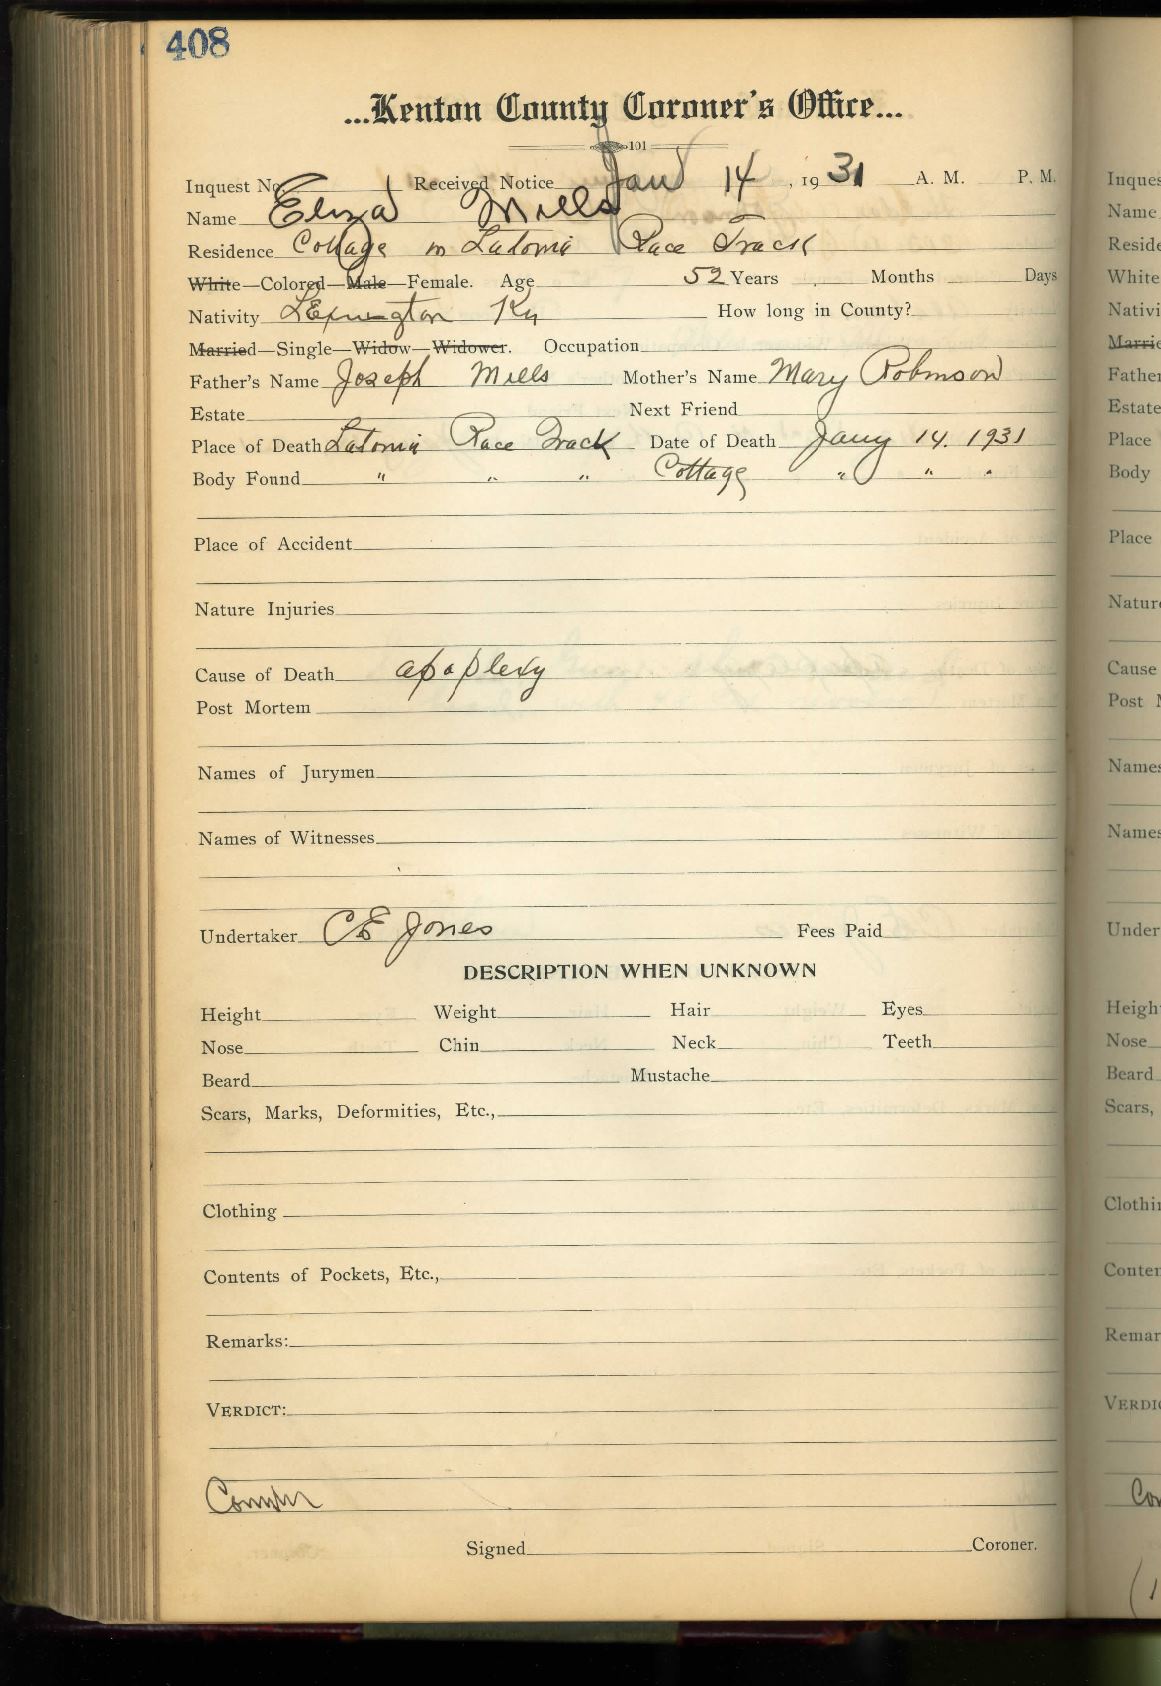 408
...Kenton County Coroner's Office...
101
Inquest No. Received Notice Jan 14, 1931 A. M. P. M.
Name Eliza Mills
Residence Cottage in Latonia Race Track
White—Colored—Male—Female. Age 52 Years Months Days
Nativity Lexington Ky How long in County?
Married—Single—Widow—Widower. Occupation
Father's Name Joseph Mills Mother's Name Mary Robinson
Estate Next Friend
Place of Death Latonia Race Track Date of Death Jany 14. 1931
Body Found " " " Cottage " " "
Place of Accident
Nature Injuries
Cause of Death apoplexy
Post Mortem
Names of Jurymen
Names of Witnesses
Undertaker C E Jones Fees Paid
DESCRIPTION WHEN UNKNOWN
Height Weight Hair Eyes
Nose Chin Neck Teeth
Beard Mustache
Scars, Marks, Deformities, Etc.,
Clothing
Contents of Pockets, Etc.,
Remarks:
VERDICT:
Signed Coroner.
Inques
Name
Reside
White
Nativi
Marrie
Father
Estate
Place
Body
Place
Nature
Cause
Post M
Names
Names
Under
Heigh
Nose
Beard
Scars,
Clothi
Conter
Remar
VERDIC